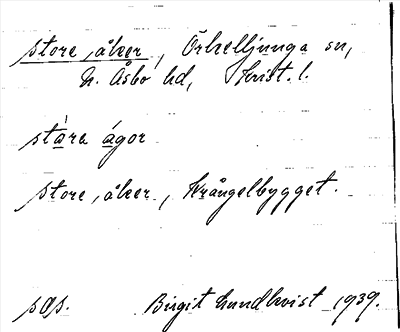 store åker, Örkelljunga sn,
N. Åsbo hd, Krist. l.
stàra ágor
store åker, Krångelbygget.
sas. Birgit Lundkvist 1939.